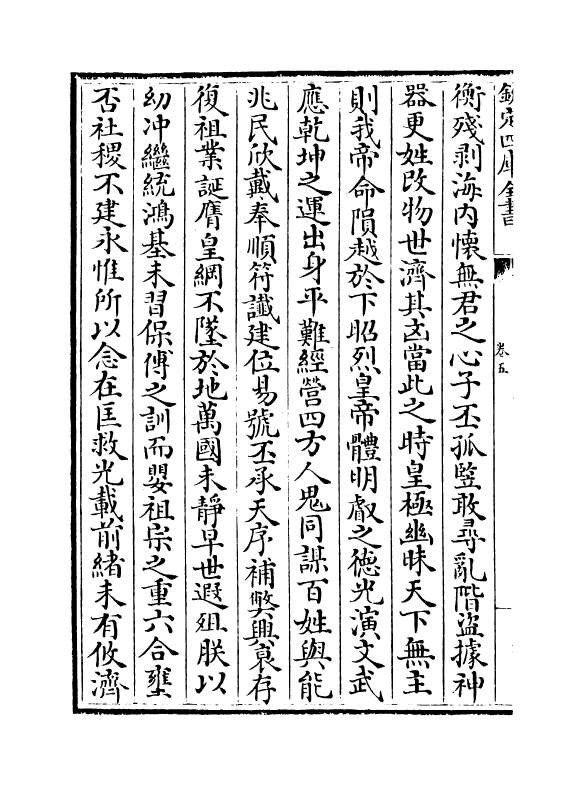 欽定四庫全書
卷五
衡殘剥海内懷無君之心子丕孤竪敢尋亂階盜據神
器更姓改物世濟其凶當此之時皇極幽昧天下無主
則我帝命隕越於下昭烈皇帝體明叡之徳光演文武
應乾坤之運出身平難經營四方人鬼同謀百姓與能
兆民欣戴奉順符讖建位易號丕承天序補弊興衰存
復祖業誕膺皇綱不墜於地萬國未靜早世遐殂朕以
幼冲繼統鴻基未習保傅之訓而嬰祖宗之重六合壅
否社稷不建永惟所以念在匡救光載前緒未有攸濟